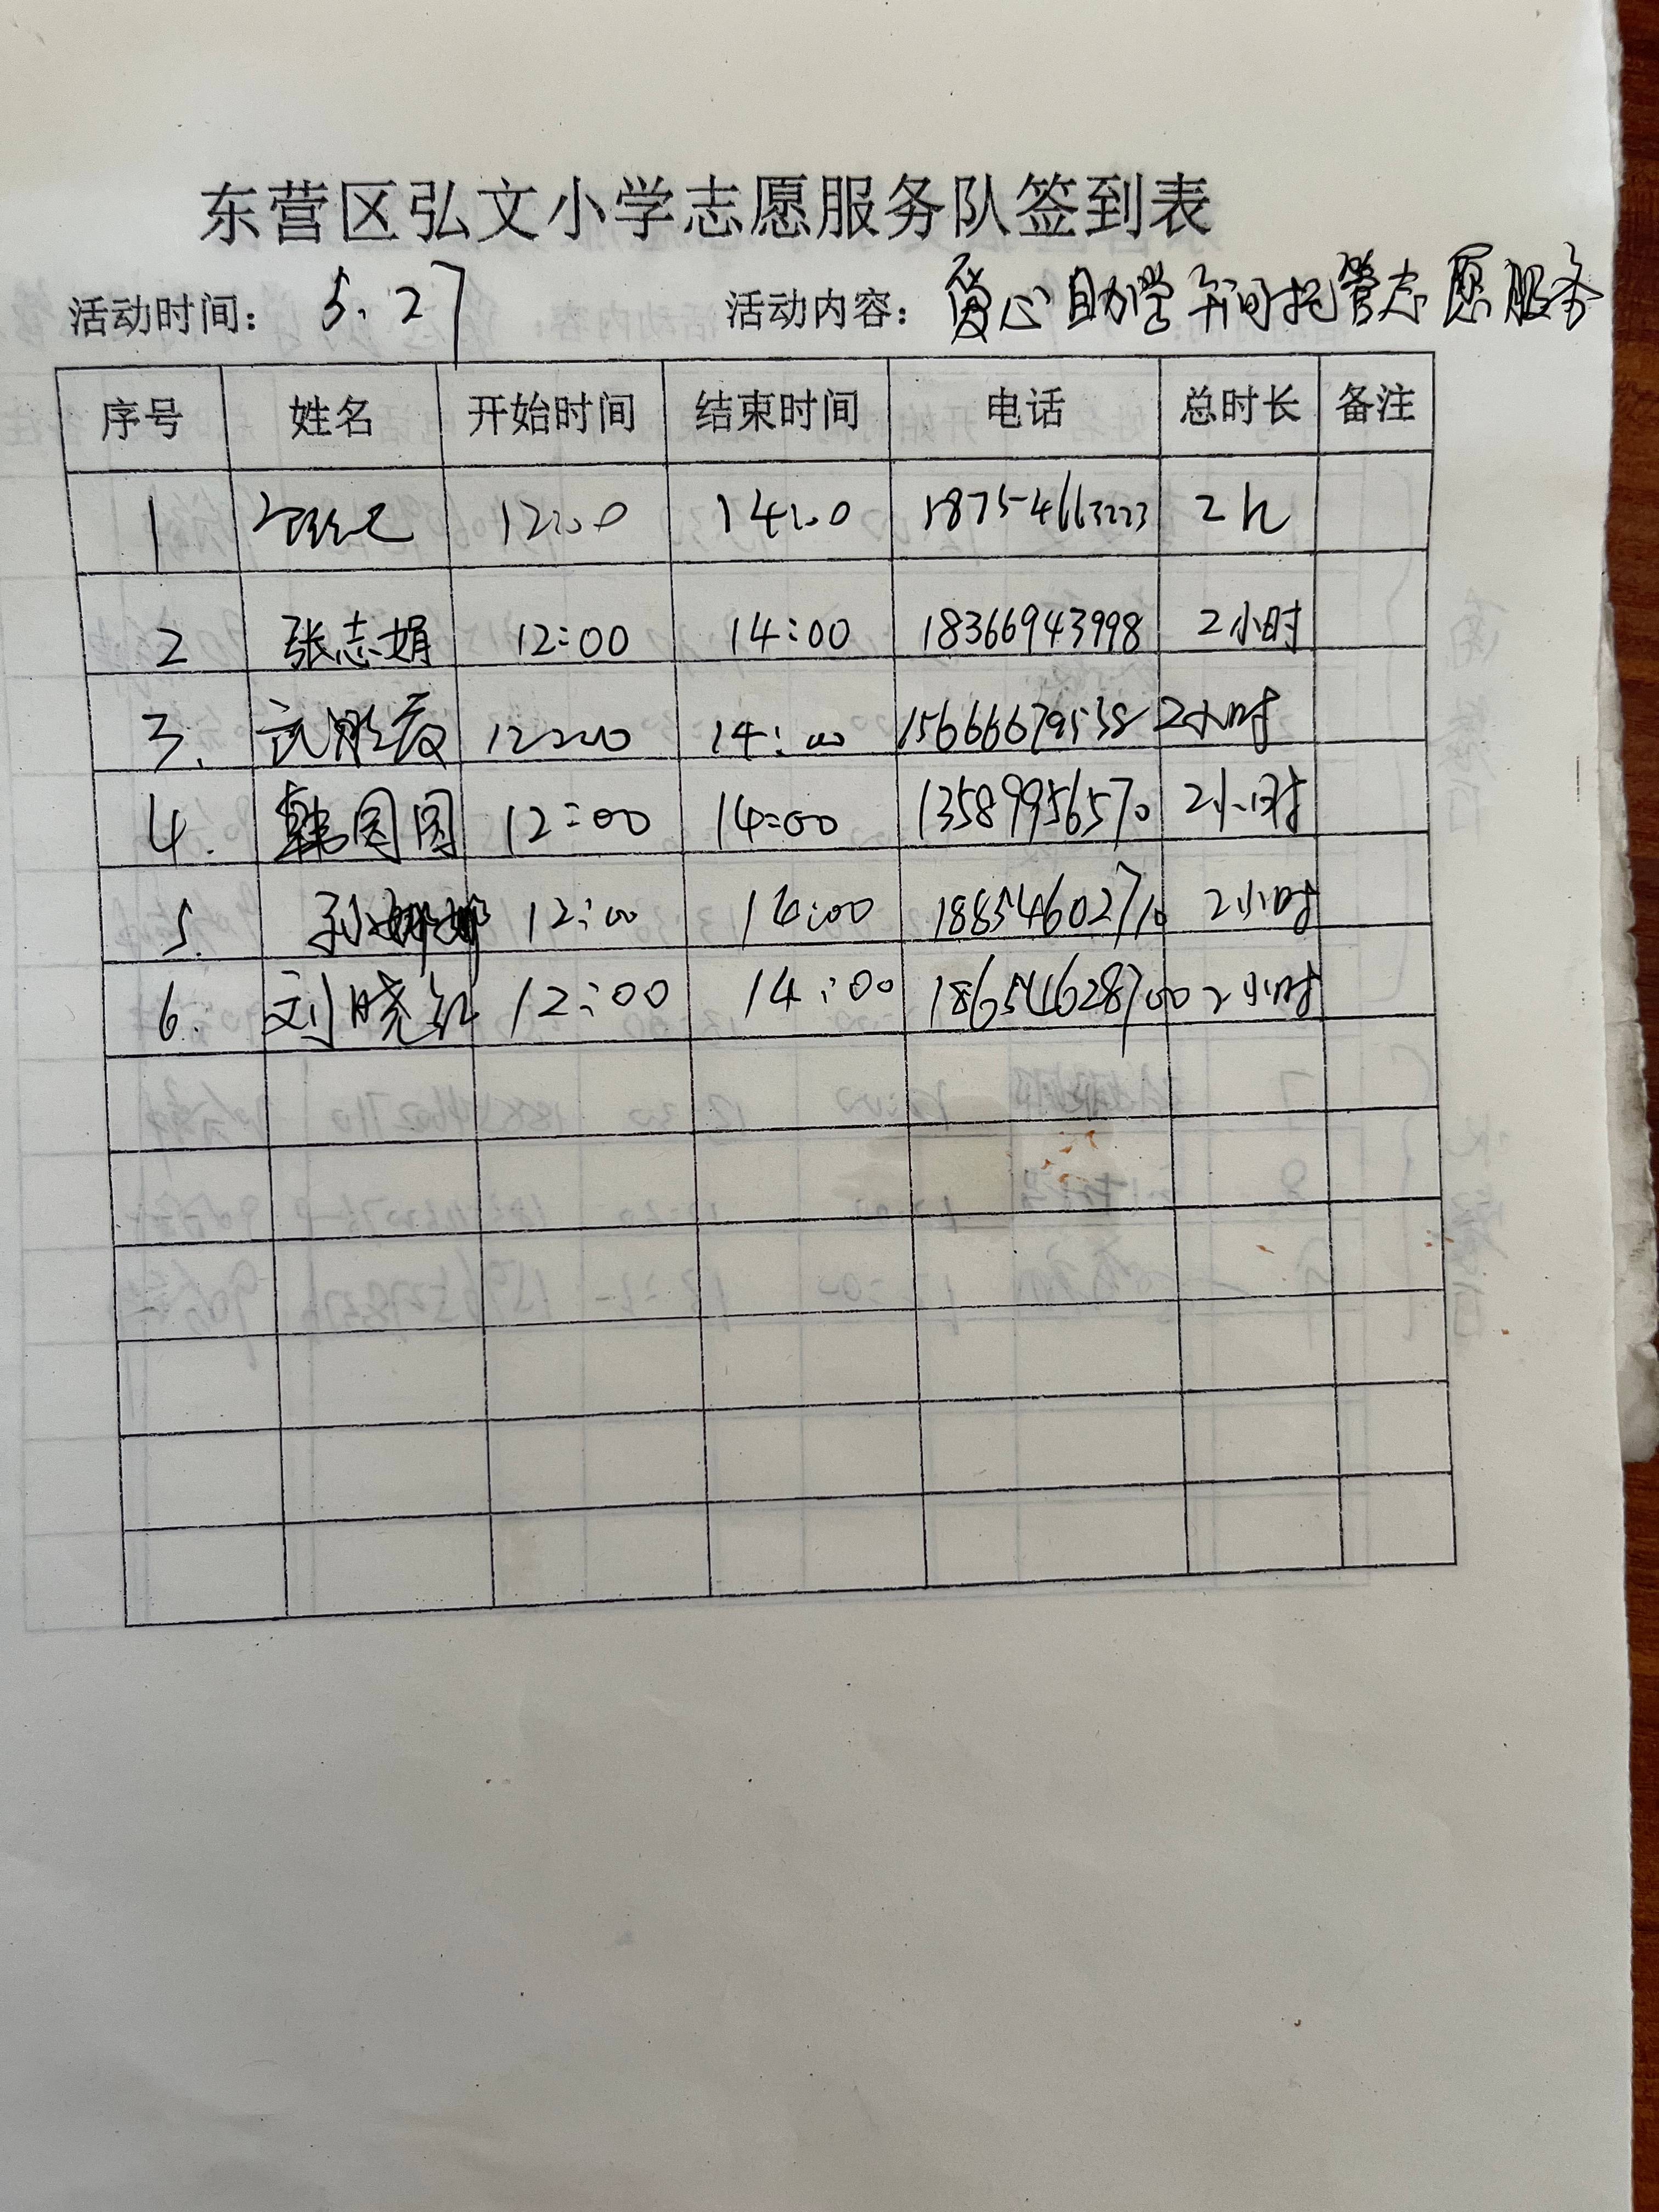 东营区弘文小学志愿服务队签到表
活动时间： 5.27 活动内容： 爱心助学午间托管志愿服务
序号 姓名 开始时间 结束时间 电话 总时长 备注
1 12:00 14:00 18754663223 2h
2 张志娟 12:00 14:00 18366943998 2小时
3. 12:00 14:00 15666679538 2小时
4. 韩园园 12:00 14:00 13589956570 2小时
5. 孙娜娜 12:00 14:00 18854602710 2小时
6. 刘晓红 12:00 14:00 18654628700 2小时